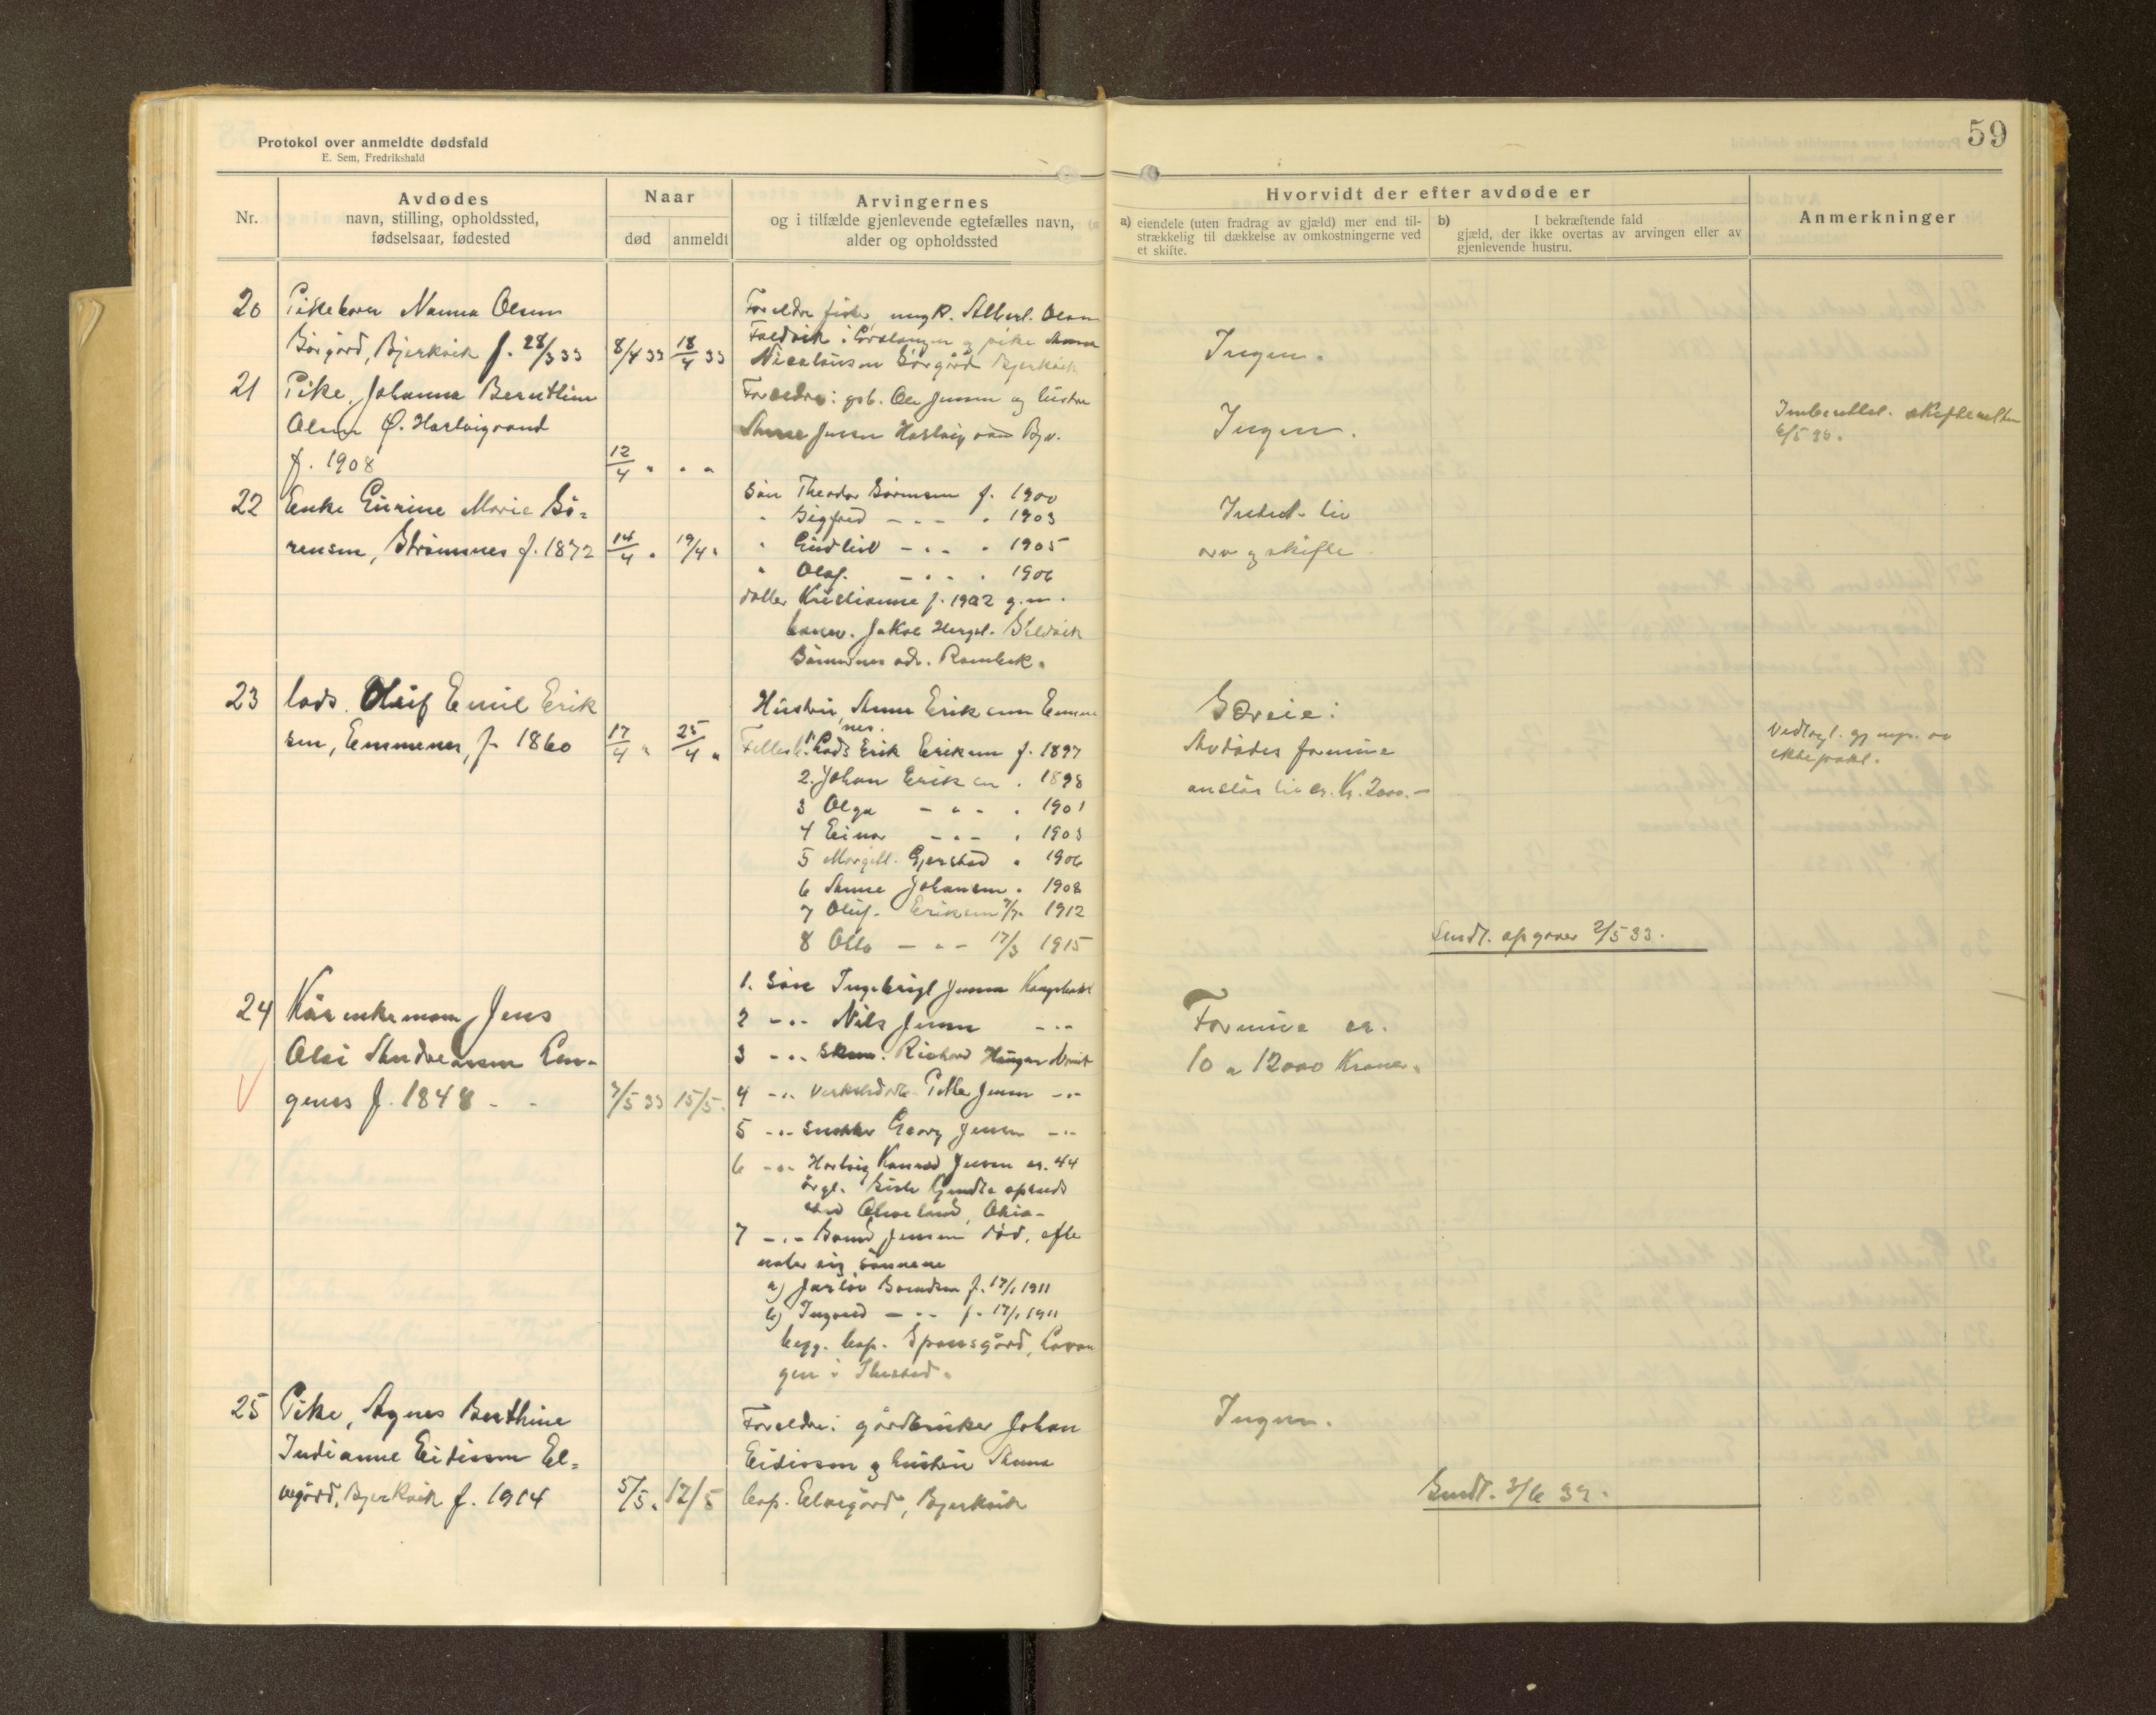 Protokol over anmeldte dødsfald
E. Sem, Fredrikshald
59
Nr.
Avdødes
navn, stilling, opholdssted,
fødselsaar, fødested
Naar
død
anmeldt
Arvingernes
og i tilfælde gjenlevende egtefælles navn,
alder og opholdssted
Hvorvidt der efter avdøde er
a) eiendele (uten fradrag av gjæld) mer end til-
strækkelig til dækkelse av omkostningerne ved
et skifte.
b) I bekræftende fald
gjæld, der ikke overtas av arvingen eller av
gjenlevende hustru.
Anmerkninger
20 Pikebarn Nanna Olsen
Sørgård, Bjerkvik f. 28/3 33
8/4 33 18/4 33
Foreldre fisker ungk. Albert Olsen
i pike Anna
Nicolaisen Sørgård Bjerkvik
Ingen.
21 Pike, Johanna Bernthine
Olsen Ø. Hartvigvand
f. 1908
12/4 " " "
Foreldre: gsb. Ole Jensen og hustru
Anne Jensen Hartvigvand
Ingen.
skifteretten
6/5 36.
22 Enke Gurine Marie Sö=
rensen, Strømsnes f. 1872
14/4 " 19/4 "
Sön Theodor Sörensen f. 1900
" Sigfred - " - " 1903
" - " - " 1905
" Olaf. - " - " 1906
datter Kristianne f. 1902 g.m.
Jakob Sildvik
adr. Rombak.
Intet til
arv og skifte
23 Lods. Oluf Emil Erik
sen, Emmenes, f. 1860
17/4 " 25/4 "
Hustru, Anna Eriksen Emme
nes.
Felles b. 1. Lods Erik Eriksen f. 1897
2. Johan Eriksen . 1898
3 Olga - " - . 1901
4 Einar - " - . 1903
5 Margit Gjerstad . 1906
6 Anne Johansen . 1908
7 Oluf. Eriksen 7/7. 1912
8 Otto - " - 17/3 1915
Særeie:
Avdødes formue
anslås til ca. Kr. 2000.-
Sendt. opgaver 2/5 33.
24 Kårenkemann Jens
Olai Andreassen Len-
genes f. 1848 - -
7/5 33 15/5.
1. Sön Ingebrigt Jensen
2 - " - Nils Jensen - " -
3 - " - Richard
4 - " - Petter Jensen - " -
5 - " - snekker Georg Jensen - " -
6 - " - Hartvig Konrad Jensen ca. 44
år gl. sist
sted Cleveland, Ohio-
7 - " - Jensen död, efter
later sig sönnene
a) f. 17/1 1911
b) Ingvald - " - f. 17/1 1911
begg. bop. Spansgård, Lavan
gen i Ibestad.
Formue ca.
10 a 12000 Kroner.
25 Pike, Agnes Berthine
Indianne Eidissen El=
vegård, Bjerkvik f. 1914
5/5. 12/5
Foreldre: gårdbruker Johan
Eidissen og hustru Anna
bop. Elvegård, Bjerkvik
Ingen.
Sendt. 2/6 33.